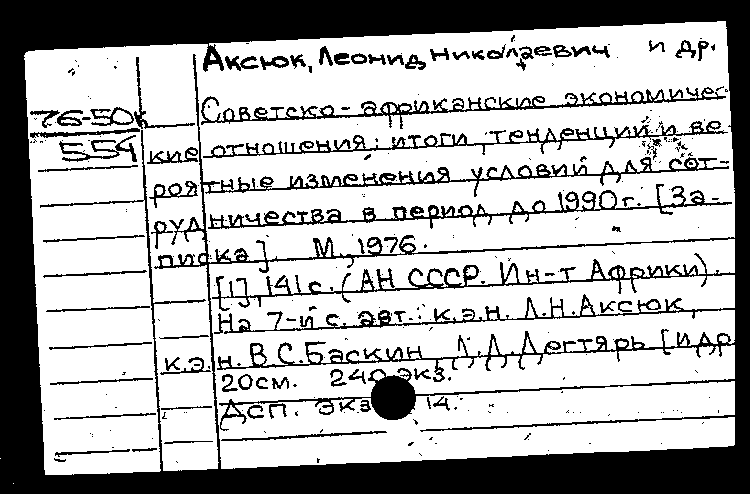 Аксюк, Леонид Николаевич и др.
76-50к
554
Советско-африканские экономичес
кие отношения: итоги, тенденции и ве
роятные изменения условий для сот-
рудничества в период до 1990г. [За-
писка]. М., 1976.
[1], 141с. (АН СССР. Ин-т Африки).
На 7-й с. авт.: к.э.н. Л.Н.Аксюк,
к.э.н. В.С.Баскин, Л.Д.Дегтярь [и др
20см. 240 экз.
Дсп. экз 14.